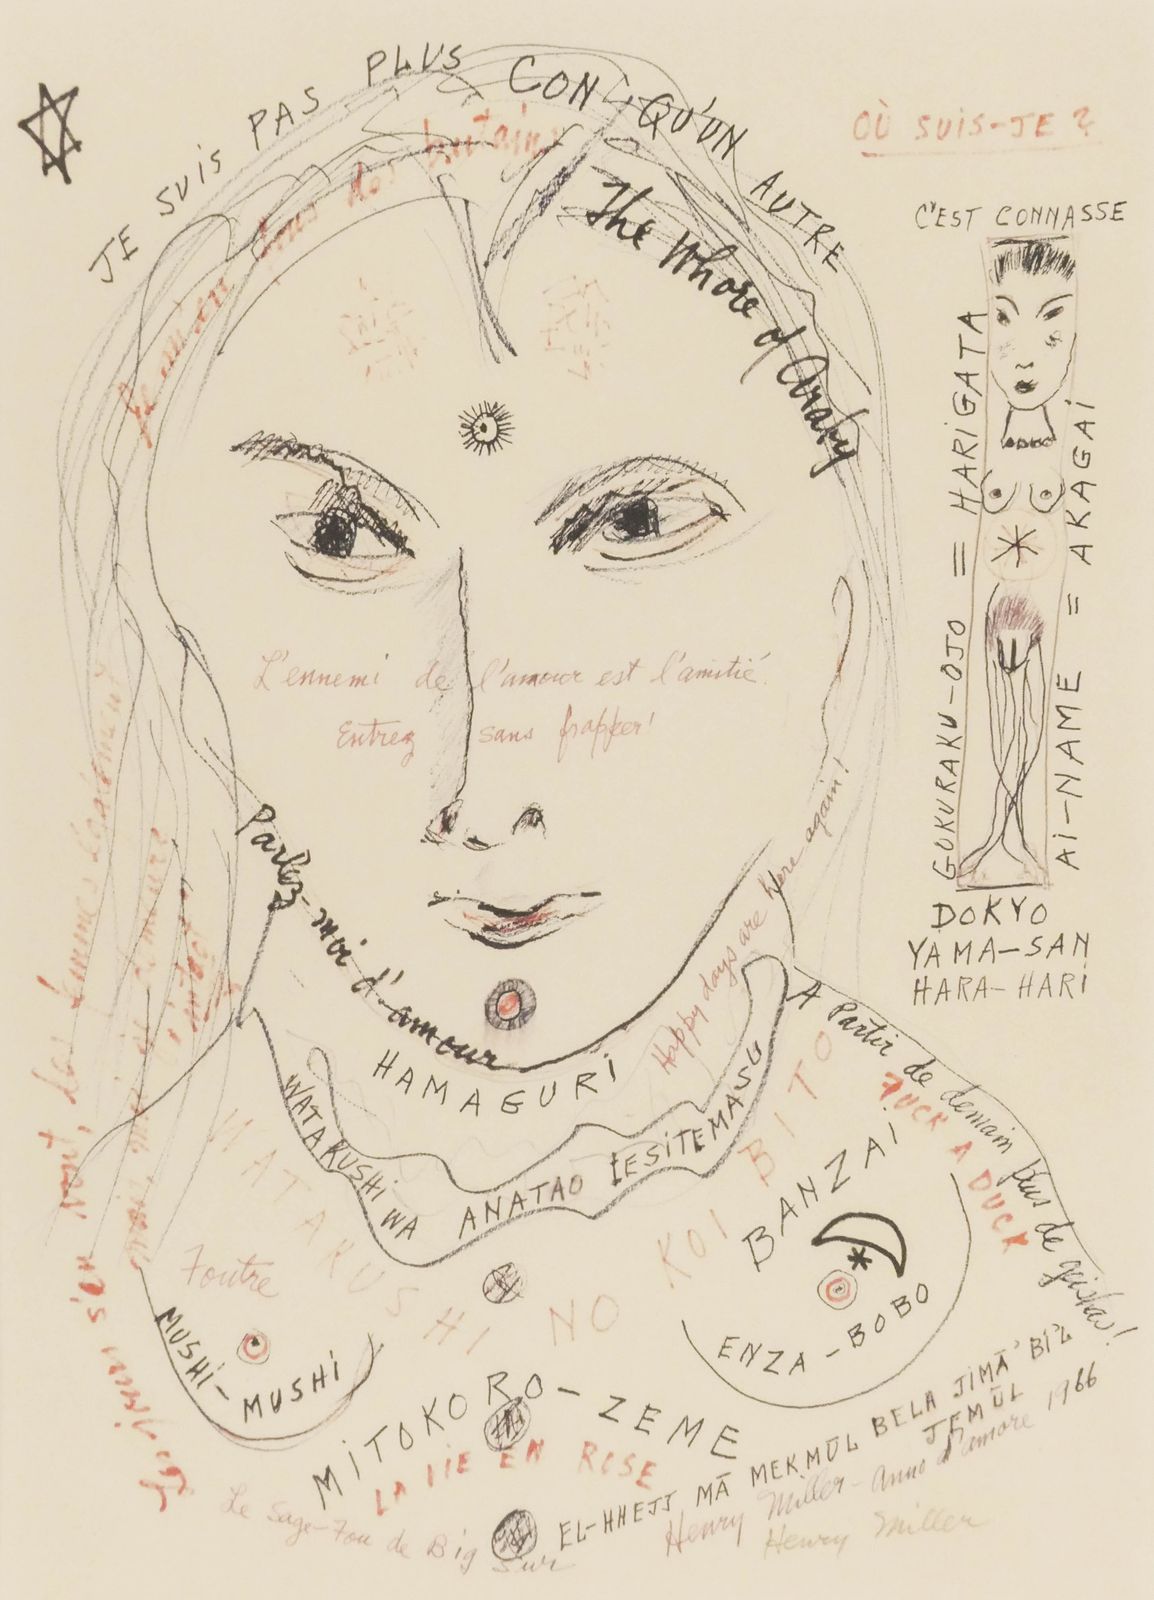 JE SUIS PAS PLUS CON QU'UN AUTRE
OÙ SUIS-JE?
tous des putains
The Whore of Araby
C'EST CONNASSE
GOKURAKU-OJO = HARIGATA
AI-NAME = AKAGAI
DOKYO
YAMA-SAN
HARA-HARI
L'ennemi de l'amour est l'amitié.
Entrez sans frapper!
Parlez-moi d'amour
Happy days are here again!
HAMAGURI
WATAKUSHI WA ANATAO IESITEMASU
A Partir de demain plus de geishas!
FUCK A DUCK
WATAKUSHI NO KOI BITO
BANZAI
ENZA-BOBO
Foutre
MUSHI-MUSHI
s'en vont, les femmes également
MITOKORO-ZEME
LA VIE EN ROSE
EL-HHEJJ MĀ MEKMŪL BELA JIMĀ' BI'L JEMŪL
Le Sage-Fou de Big Sur
Henry Miller - Anno d'amore 1966
Henry Miller